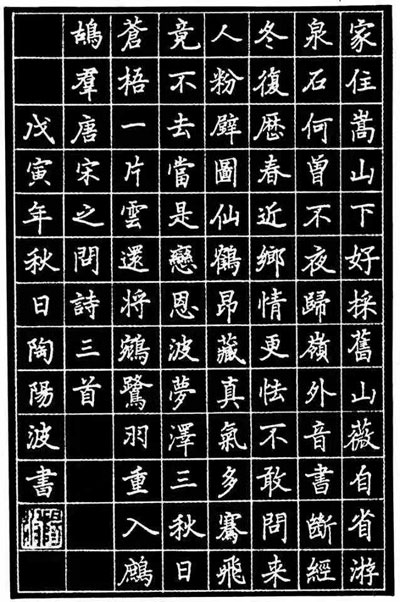 家住嵩山下好採舊山薇自省游
泉石何曾不夜歸嶺外音書斷經
冬復歴春近鄉情更怯不敢問來
人粉壁圖仙鶴昂藏真氣多騫飛
竟不去當是戀恩波夢澤三秋日
蒼梧一片雲還將鵷鷺羽重入鷓
鴣羣唐宋之問詩三首
戊寅年秋日陶陽波書